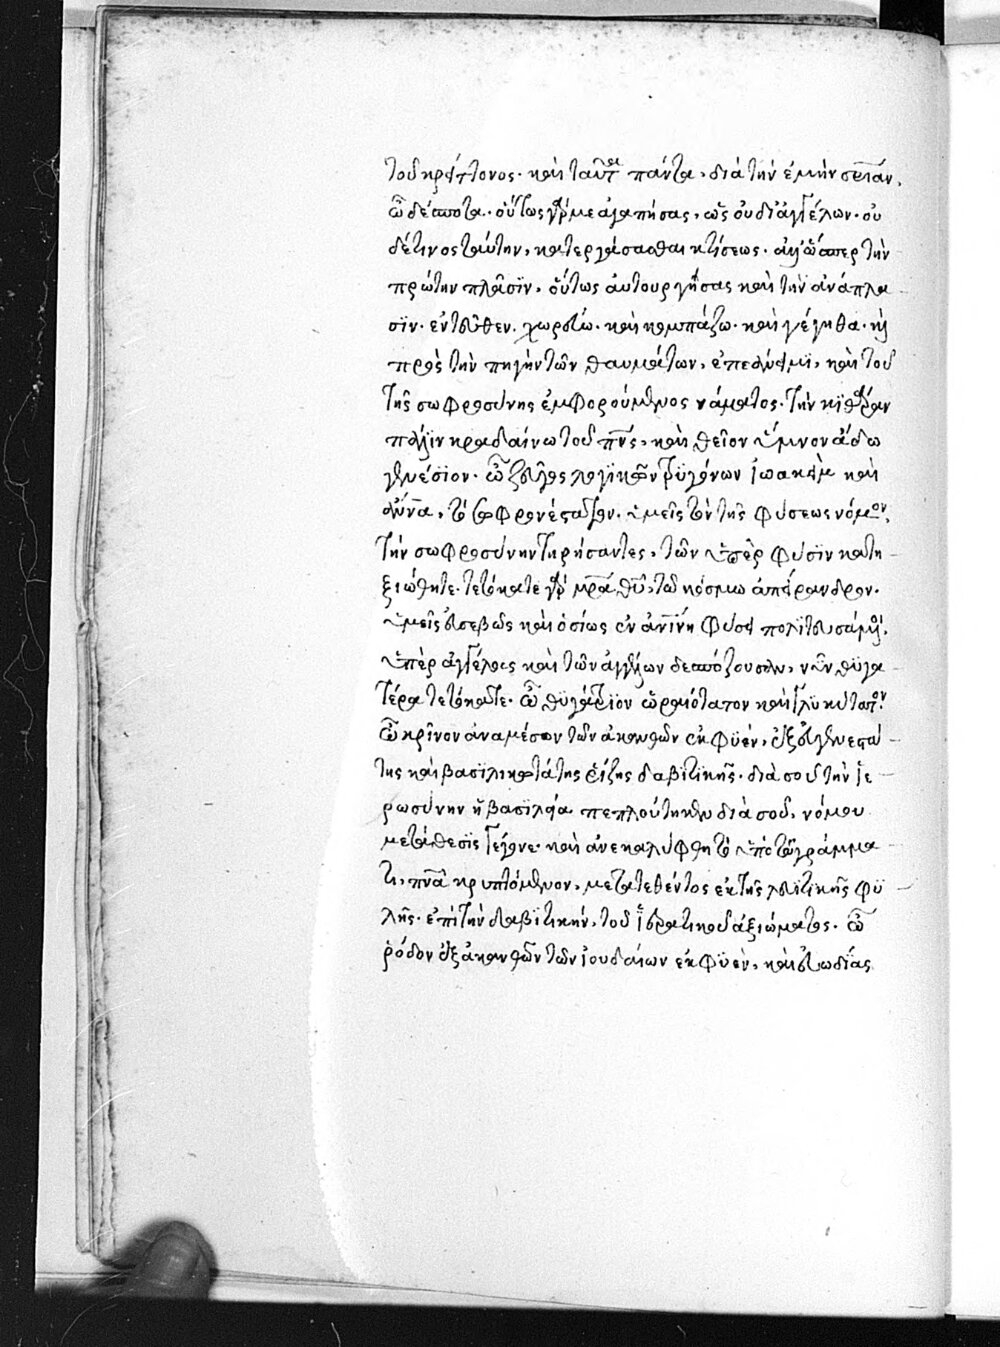 τοῦ κρείττονος· καὶ ταῦτα πάντα, διὰ τὴν ἐμὴν σρίαν,
ὦ δέσποτα. οὕτως γάρ με ἀγαπήσας, ὡς οὐ δι' ἀγγέλων· οὐ
δέ τινος ταύτην, κατεργάσασθαι κτίσεως. ἀλλ' ὥσπερ τὴν
πρώτην πλάσϊν, οὕτως αὐτουργήσας καὶ τὴν ἀνάπλα
σϊν· ἐντεῦθεν. χορεύω. καὶ κομπάζω. καὶ γέγηθα. κὶ
πρὸς τὴν πηγὴν τῶν θαυμάτων, ἐπείγομαι, καὶ τοῦ
τῆς σωφροσύνης ἐμφορούμενος νάματος. τὴν κιθάραν
πάλϊν κραδαίνω τοῦ πνς, καὶ θεῖον ὕμνον ἄδω
γενέσϊον. ὦ ζεῦγος λογϊκῶν τρϋγόνων ἰωακεὶμ καὶ
ἄννα, τὸ σωφρονέστατον. ὑμεῖς τὸν τῆς φύσεως νόμον,
τὴν σωφροσύνην τηρήσαντες, τῶν ὑπὲρ φύσϊν κατη
ξιώθητε. τετόκατε γὰρ μρα θυ, τῶ κόσμω ἀπείρανδρον.
ὑμεῖς εὐσεβῶς καὶ ὁσίως ἐν ἀνίνη φύσει πολϊτευσάμενοι.
ὑπὲρ ἀγγέλους καὶ τῶν ἀγγέλων δεσπόζουσαν, νῦν θϋγα
τέρα τετόκατε. ὦ θϋγάτριον ὡραιότατον καὶ γλϋκύτατον.
ὦ κρῖνον ἀναμέσον τῶν ἀκανθῶν ἐκφϋὲν, ἐξ εὐγενεστά
της καὶ βασϊλικωτάτης ῥίζης δαβϊτϊκῆς. διὰ σοῦ τὴν ἱε
ρωσύνην ἡ βασϊλεία πεπλούτηκεν διὰ σοῦ, νόμου
μετάθεσϊς γέγονε. καὶ ἀνεκαλύφθη τὸ ὑπὸ τῶ γράμμα
τι, πνα κρυπτόμενον, μετατεθέντος ἐκ τῆς λευϊτικῆς φϋ
λῆς. ἐπὶ τὴν δαβϊτικήν, τοῦ ἱερατικοῦ ἀξιώματος. ὦ
ῥόδον ἐξ ἀκανθῶν τῶν ἰουδαίων ἐκφϋὲν, καὶ εὐωδίας